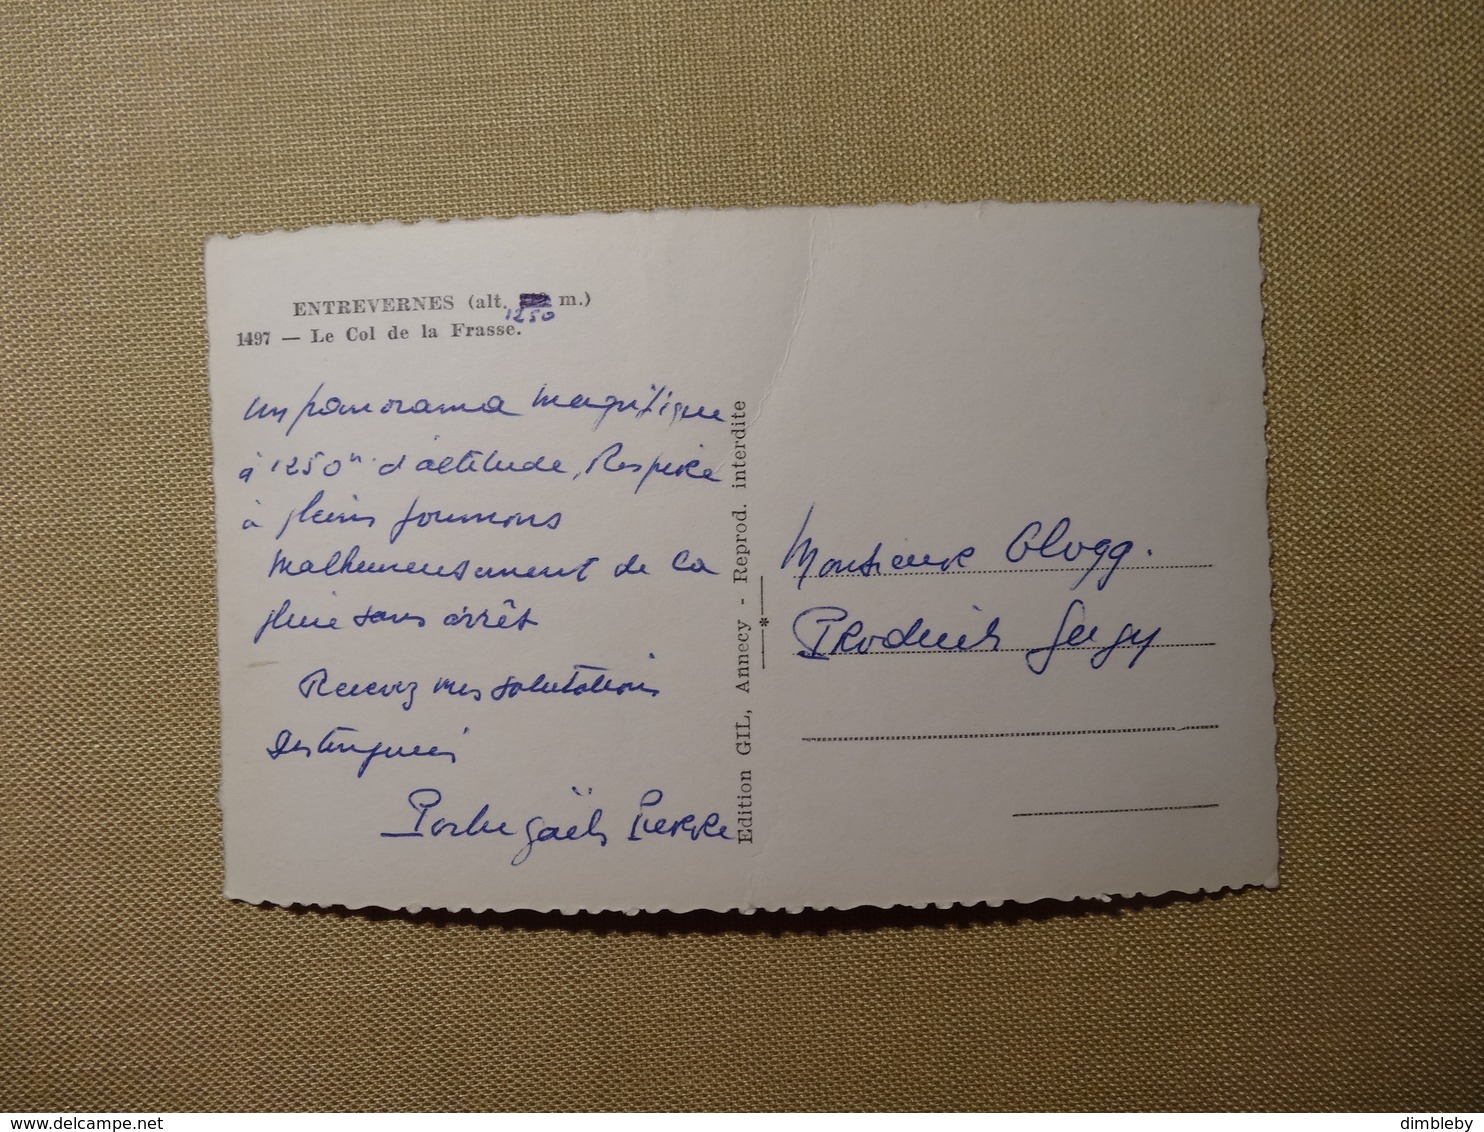 ENTREVERNES (alt. m.)
1250
1497 — Le Col de la Frasse.
un panorama magnifique
à 1250m d'altitude, Respire
à pleins poumons
malheureusement de la
pluie sans arrêt
Recevez mes salutations
Distinguées
Pierre
Edition GIL, Annecy - Reprod. interdite
Monsieur Glogg.
Produits Gugy
delcampe.net
dimbleby